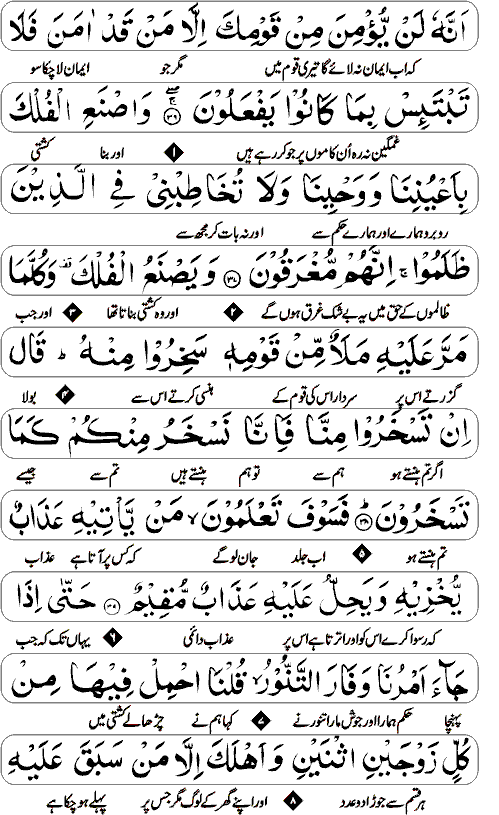 اَنَّهٗ لَنْ يُّؤْمِنَ مِنْ قَوْمِكَ اِلَّا مَنْ قَدْ اٰمَنَ فَلَا
کہ اب ایمان نہ لائے گا تیری قوم میں مگر جو ایمان لا چکا سو
تَبْتَئِسْ بِمَا كَانُوْا يَفْعَلُوْنَ ۚۖ ۳۶ وَاصْنَعِ الْفُلْكَ
غمگین نہ رہ اُن کاموں پر جو کر رہے ہیں ۱ اور بنا کشتی
بِاَعْيُنِنَا وَوَحْيِنَا وَلَا تُخَاطِبْنِيْ فِي الَّذِيْنَ
روبرو ہمارے اور ہمارے حکم سے اور نہ بات کر مجھ سے
ظَلَمُوْا ۚ اِنَّهُمْ مُّغْرَقُوْنَ ۳۷ وَيَصْنَعُ الْفُلْكَ ۫ وَكُلَّمَا
ظالموں کے حق میں یہ بے شک غرق ہوں گے ۲ اور وہ کشتی بناتا تھا ۳ اور جب
مَرَّ عَلَيْهِ مَلَاٌ مِّنْ قَوْمِهٖ سَخِرُوْا مِنْهُ ؕ قَالَ
گزرتے اس پر سردار اس کی قوم کے ہنسی کرتے اس سے ۴ بولا
اِنْ تَسْخَرُوْا مِنَّا فَاِنَّا نَسْخَرُ مِنْكُمْ كَمَا
اگر تم ہنستے ہو ہم سے تو ہم ہنستے ہیں تم سے جیسے
تَسْخَرُوْنَ ؕ ۳۸ فَسَوْفَ تَعْلَمُوْنَ ۙ مَنْ يَّاْتِيْهِ عَذَابٌ
تم ہنستے ہو ۵ اب جلد جان لو گے کہ کس پر آتا ہے عذاب
يُّخْزِيْهِ وَيَحِلُّ عَلَيْهِ عَذَابٌ مُّقِيْمٌ ۳۹ حَتّٰٓى اِذَا
کہ رسوا کرے اس کو اور اترتا ہے اس پر عذاب دائمی ۶ یہاں تک کہ جب
جَآءَ اَمْرُنَا وَفَارَ التَّنُّوْرُ ۙ قُلْنَا احْمِلْ فِيْهَا مِنْ
پہنچا حکم ہمارا اور جوش مارا تنور نے ۷ کہا ہم نے چڑھا لے کشتی میں
كُلٍّ زَوْجَيْنِ اثْنَيْنِ وَاَهْلَكَ اِلَّا مَنْ سَبَقَ عَلَيْهِ
ہر قسم سے جوڑا دو عدد ۸ اور اپنے گھر کے لوگ مگر جس پر پہلے ہو چکا ہے